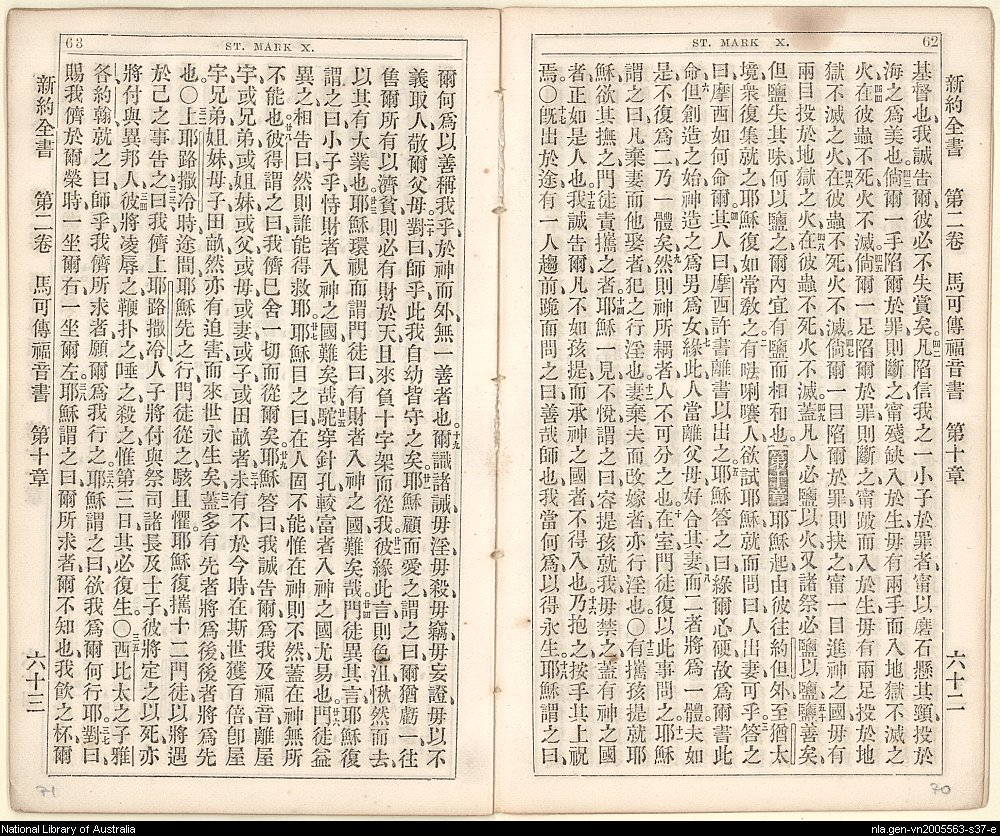 62
ST. MARK X.
新約全書 第二卷 馬可傳福音書 第十章 六十二
基督也、我誠告爾、彼必不失賞矣、凡陷信我之一小子於罪者、甯以磨石懸其頸、投於
海之爲美也、倘爾一手陷爾於罪則斷之、甯殘缺入於生、毋有兩手而入地獄不滅之
火、在彼蟲不死火不滅、倘爾一足陷爾於罪則斷之、甯跛而入於生、毋有兩足投於地
獄不滅之火、在彼蟲不死火不滅、倘爾一目陷爾於罪則抉之、甯一目進神之國、毋有
兩目投於地獄之火、在彼蟲不死火不滅、蓋凡人必鹽以火、又諸祭必鹽以鹽、鹽善矣、
但鹽失其味、何以鹽之、爾內宜有鹽而相和也、第十章耶穌起、由彼往約但外、至猶太
境、衆復集就之、耶穌復如常敎之、有㗿唎㘔人欲試耶穌、就而問曰、人出妻可乎、答之
曰、摩西如何命爾、其人曰、摩西許書離書以出之、耶穌答之曰、緣爾心硬、故爲爾書此
命、但創造之始、神造之爲男爲女、緣此人當離父母、好合其妻、而二者將爲一體、夫如
是、不復爲二、乃一體矣、然則神所耦者、人不可分之也、在室門徒復以此事問之、耶穌
謂之曰、凡棄妻而他娶者、犯之行淫也、妻棄夫而改嫁者、亦行淫也、○有攜孩提就耶
穌、欲其撫之、門徒責攜之者、耶穌一見不悅、謂之曰、容提孩就我、毋禁之、蓋有神之國
者、正如是人也、我誠告爾、凡不如孩提而承神之國者、不得入也、乃抱之、按手其上祝
焉、○旣出於途、有一人趨前跪而問之曰、善哉師也、我當何爲以得永生、耶穌謂之曰、
63
ST. MARK X.
爾何爲以善稱我乎、於神而外、無一善者也、爾識諸誡、毋淫、毋殺、毋竊、毋妄證、毋以不
義取人、敬爾父母、對曰、師乎、此我自幼皆守之矣、耶穌顧而愛之、謂之曰、爾猶虧一、往
售爾所有以濟貧、則必有財於天、且來負十字架而從我、彼緣此言則色沮、愀然而去、
以其有大業也、耶穌環視而謂門徒曰、有財者入神之國難矣哉、門徒異其言、耶穌復
謂之曰、小子乎、恃財者入神之國難矣哉、駝穿針孔、較富者入神之國尤易也、門徒益
異之、相告曰、然則誰能得救耶、耶穌目之曰、在人固不能、惟在神則不然、蓋在神無所
不能也、彼得謂之曰、我儕已舍一切而從爾矣、耶穌答曰、我誠告爾、爲我及福音、離屋
宇、或兄弟、或姐妹、或父、或母、或妻、或子、或田畝者、未有不於今時在斯世獲百倍、卽屋
宇兄弟姐妹母子田畝、然亦有迫害、而來世永生矣、蓋多有先者將爲後、後者將爲先
也、○上耶路撒冷時、途間耶穌先之行、門徒從之、駭且懼、耶穌復攜十二門徒、以將遇
於己之事告之曰、我儕上耶路撒冷、人子將付與祭司諸長及士子、彼將定之以死、亦
將付與異邦人、彼將凌辱之、鞭扑之、唾之、殺之、惟第三日其必復生、○西比太之子雅
各約翰就之曰、師乎、我儕所求者、願爾爲我行之、耶穌謂之曰、欲我爲爾何行耶、對曰、
賜我儕於爾榮時、一坐爾右、一坐爾左、耶穌謂之曰、爾所求者、爾不知也、我飮之杯、爾
新約全書 第二卷 馬可傳福音書 第十章 六十三
70
71
National Library of Australia
nla.gen-vn2005563-s37-e